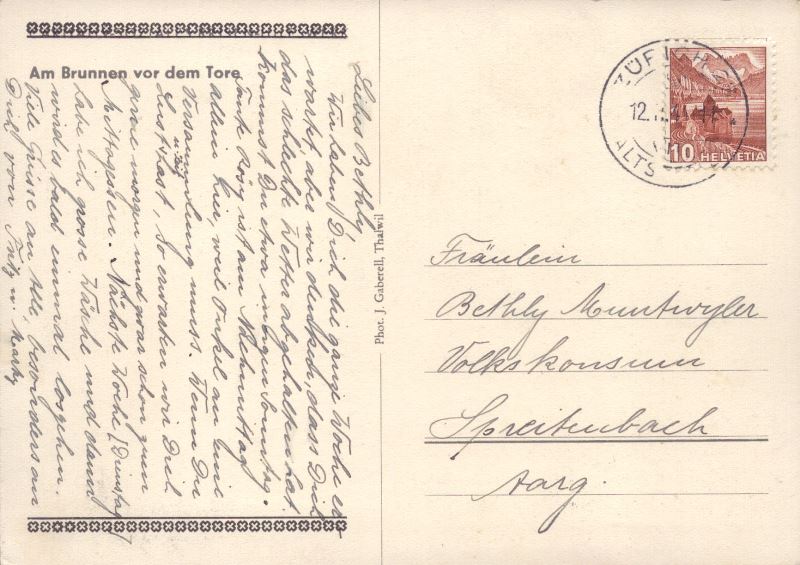 Am Brunnen vor dem Tore
Liebes Bethly!
Wir haben Dich die ganze Woche er-
wartet, aber wir denken, dass Dich
das schlechte Wetter abgehalten hat.
Kommst Du etwa morgen Sonntag.
Tante Rösy ist am Nachmittag
allein hier, weil Onkel an eine
Versammlung muss. Wenn Du
Lust hast, so erwarten wir Dich
gerne morgen und zwar schon zum
Mittagessen. Nächste Woche (Dienstag)
habe ich grosse Wäsche und dann
wird es bald einmal losgehen.
Viele Grüsse an Alle, besonders an
Dich von Fritz u. Marty
Phot. J. Gaberell, Thalwil
ZÜRICH
12.
ALTS
10 HELVETIA
Fräulein
Bethly Muntwyler
Volkskonsum
Spreitenbach
Aarg.